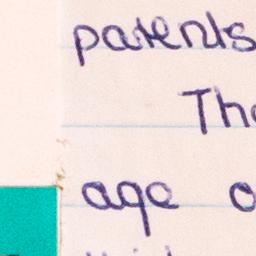 patents
The
age o